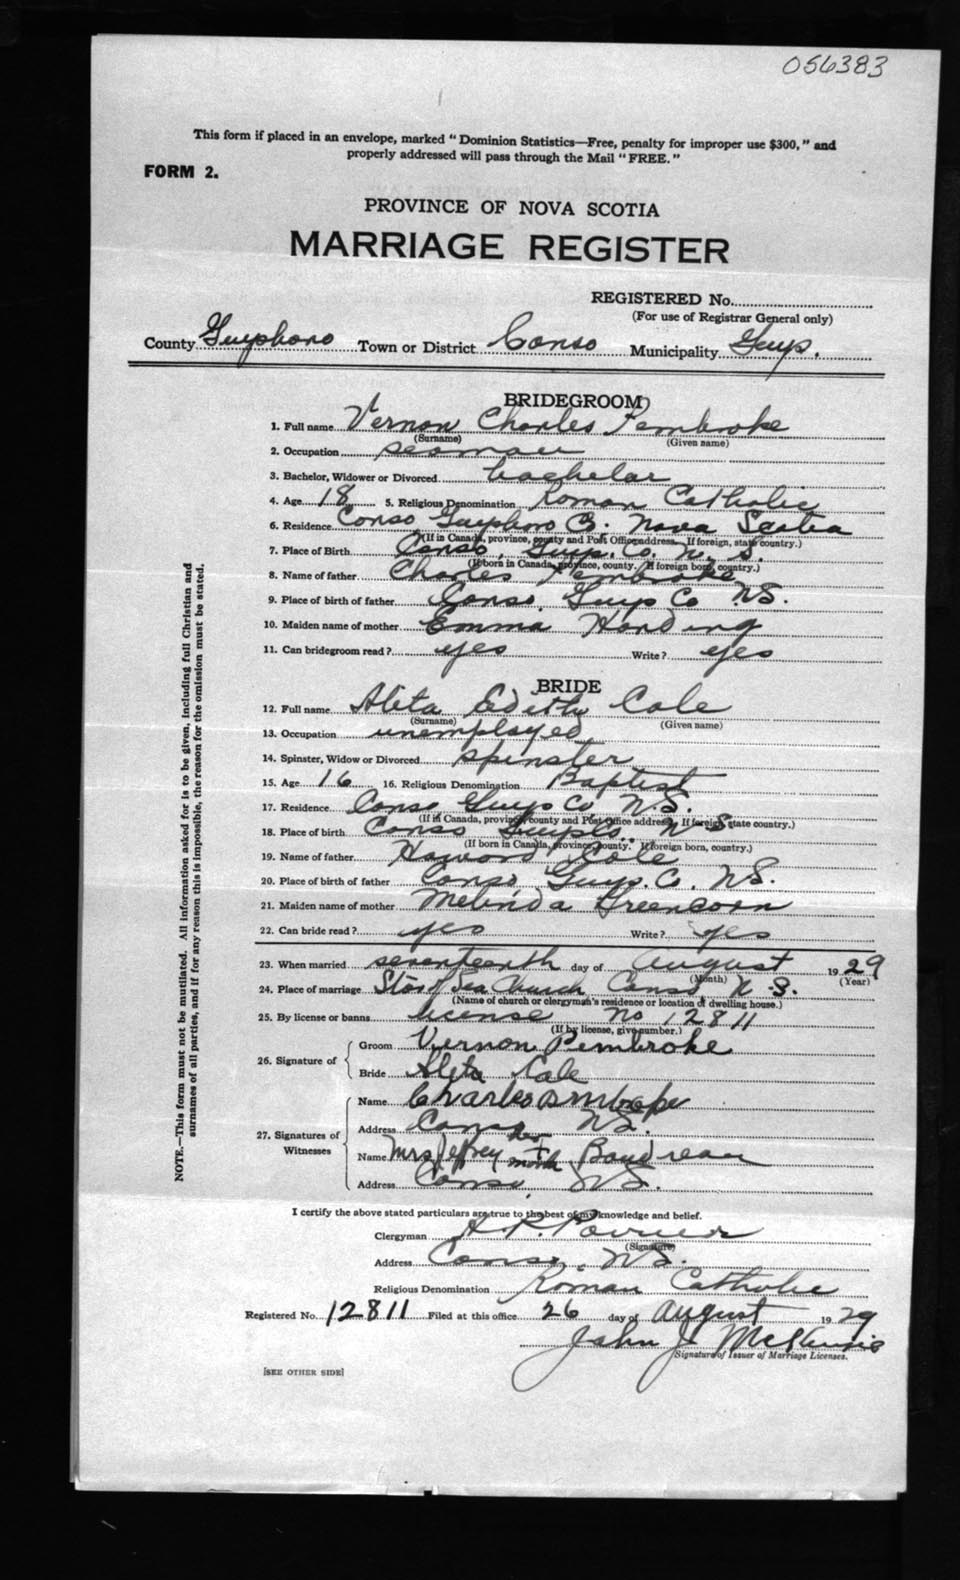 056383
This form if placed in an envelope, marked "Dominion Statistics—Free, penalty for improper use $300," and
properly addressed will pass through the Mail "FREE."
FORM 2.
PROVINCE OF NOVA SCOTIA
MARRIAGE REGISTER
REGISTERED No.
(For use of Registrar General only)
County Guysboro Town or District Canso Municipality Guys.
BRIDEGROOM
1. Full name Vernon Charles Pembroke
(Surname) (Given name)
2. Occupation seaman
3. Bachelor, Widower or Divorced bachelar
4. Age 18 5. Religious Denomination Roman Catholic
6. Residence Canso Guysboro Co. Nova Scotia
(If in Canada, province, county and Post Office address. If foreign, state country.)
7. Place of Birth Canso, Guys. Co. N. S.
(If born in Canada, province, county. If foreign born, country.)
8. Name of father Charles Pembroke
9. Place of birth of father Canso Guys Co N.S.
10. Maiden name of mother Emma Harding
11. Can bridegroom read? yes Write? yes
BRIDE
12. Full name Aleta Edith Cole
(Surname) (Given name)
13. Occupation unemployed
14. Spinster, Widow or Divorced spinster
15. Age 16 16. Religious Denomination Baptist
17. Residence Canso Guys Co, N.S.
(If in Canada, province, county and Post Office address. If foreign, state country.)
18. Place of birth Canso Guys Co., N.S.
(If born in Canada, province, county. If foreign born, country.)
19. Name of father Howard Cole
20. Place of birth of father Canso Guys. Co. N.S.
21. Maiden name of mother Melinda Greencorn
22. Can bride read? yes Write? yes
23. When married seventeenth day of August 1929
(Month) (Year)
24. Place of marriage Star of Sea Church Canso N.S.
(Name of church or clergyman's residence or location of dwelling house.)
25. By license or banns license No 12811
(If by license, give number.)
26. Signature of
Groom Vernon Pembroke
Bride Aleta Cole
27. Signatures of Witnesses
Name Charles
Address Canso N.S.
Name Mrs Jeffrey her + mark Boudreau
Address Canso, N.S.
I certify the above stated particulars are true to the best of my knowledge and belief.
Clergyman A. R. Poirier
(Signature)
Address Canso, N.S.
Religious Denomination Roman Catholic
Registered No. 12811 Filed at this office 26 day of August 1929
John J. McKenzie
Signature of Issuer of Marriage Licenses.
[SEE OTHER SIDE]
NOTE.—This form must not be mutilated. All information asked for is to be given, including full Christian and
surnames of all parties, and if for any reason this is impossible, the reason for the omission must be stated.